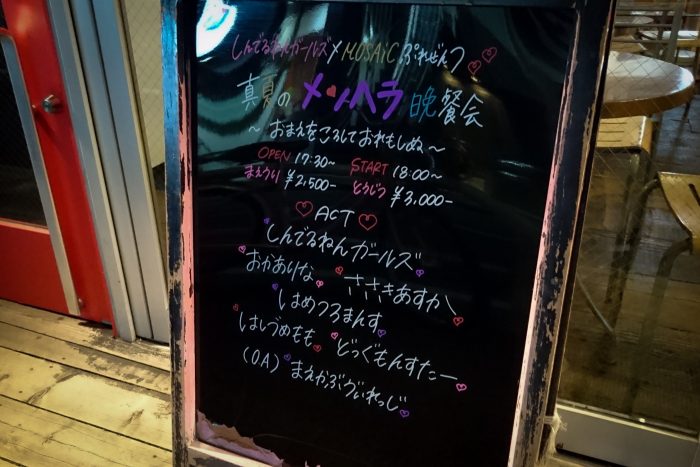 しんでるねんガールズ×MOSAiCぷれぜんつ
真夏のメンヘラ晩餐会
～おまえをころしておれもしぬ～
OPEN 17:30～ START 18:00～
まえうり ¥2,500- とうじつ ¥3,000-
ACT
しんでるねんガールズ
おかありな ささきあすか
はめつろまんす
はしづめもも どっぐもんすたー
(OA) まえかぶヴぃれっじ